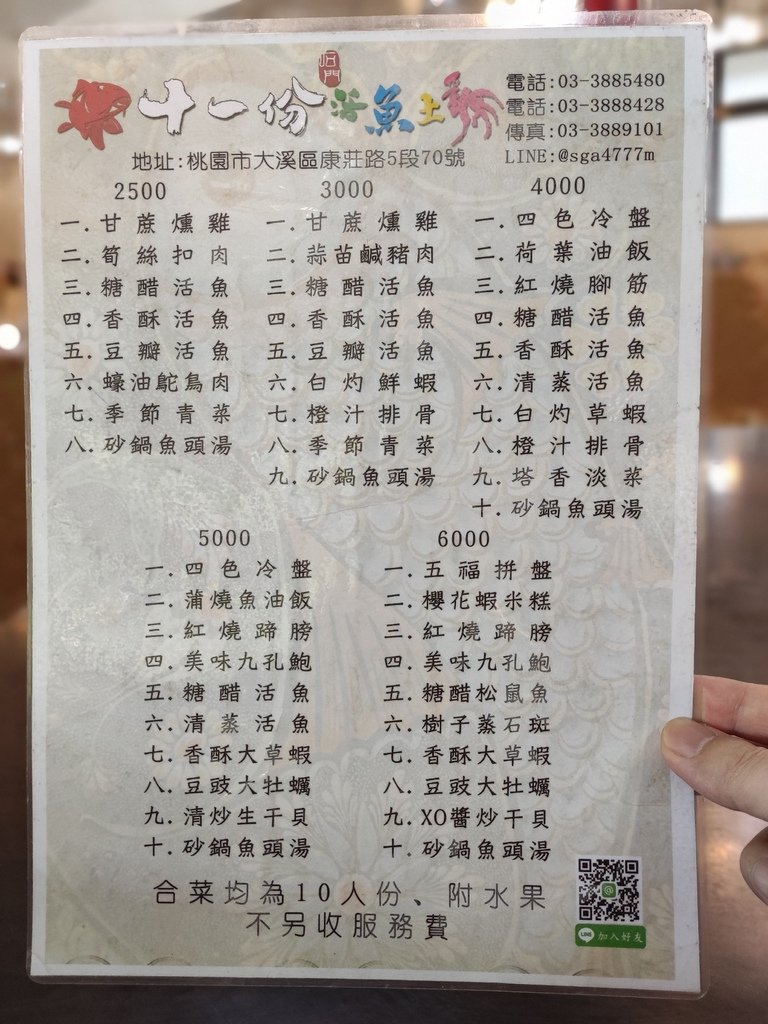 石門
十一份 活魚土雞
電話:03-3885480
電話:03-3888428
傳真:03-3889101
LINE:@sga4777m
地址:桃園市大溪區康莊路5段70號
2500
一.甘蔗燻雞
二.筍絲扣肉
三.糖醋活魚
四.香酥活魚
五.豆瓣活魚
六.蠔油鴕鳥肉
七.季節青菜
八.砂鍋魚頭湯
3000
一.甘蔗燻雞
二.蒜苗鹹豬肉
三.糖醋活魚
四.香酥活魚
五.豆瓣活魚
六.白灼鮮蝦
七.橙汁排骨
八.季節青菜
九.砂鍋魚頭湯
4000
一.四色冷盤
二.荷葉油飯
三.紅燒腳筋
四.糖醋活魚
五.香酥活魚
六.清蒸活魚
七.白灼草蝦
八.橙汁排骨
九.塔香淡菜
十.砂鍋魚頭湯
5000
一.四色冷盤
二.蒲燒魚油飯
三.紅燒蹄膀
四.美味九孔鮑
五.糖醋活魚
六.清蒸活魚
七.香酥大草蝦
八.豆豉大牡蠣
九.清炒生干貝
十.砂鍋魚頭湯
6000
一.五福拼盤
二.櫻花蝦米糕
三.紅燒蹄膀
四.美味九孔鮑
五.糖醋松鼠魚
六.樹子蒸石斑
七.香酥大草蝦
八.豆豉大牡蠣
九.XO醬炒干貝
十.砂鍋魚頭湯
合菜均為10人份、附水果
不另收服務費
LINE 加入好友